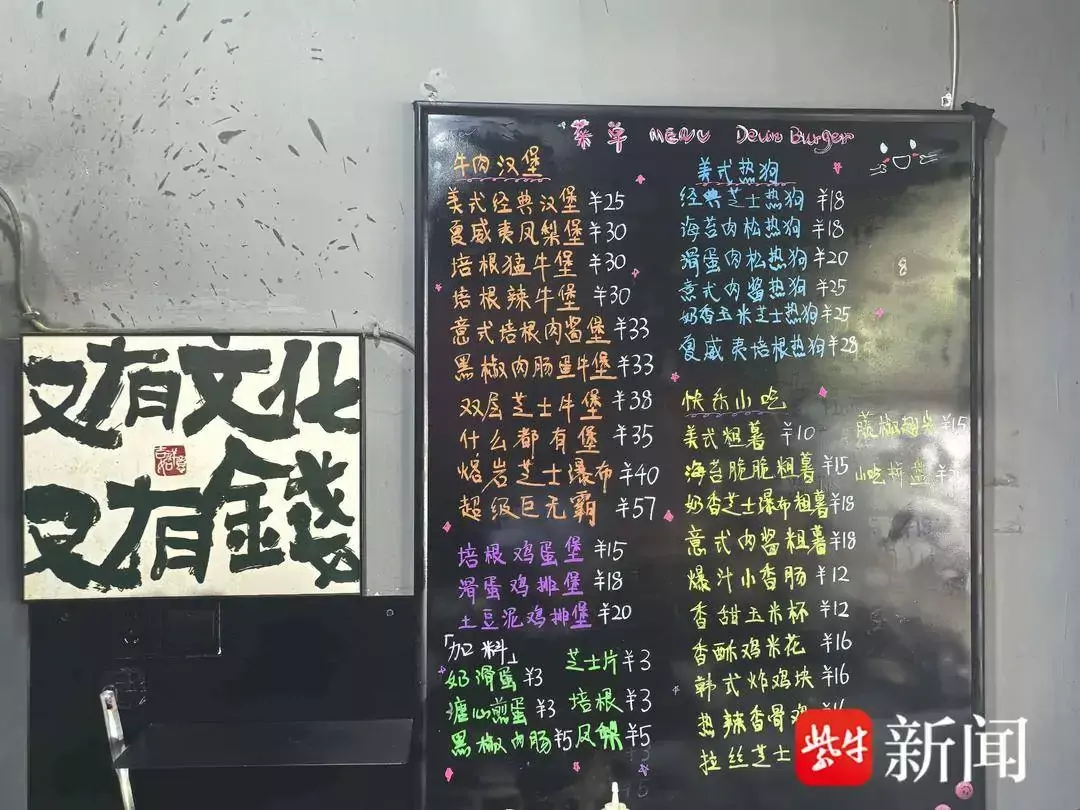 菜单 MENU Devin Burger
牛肉汉堡
美式经典汉堡 ¥25
夏威夷凤梨堡 ¥30
培根猛牛堡 ¥30
培根辣牛堡 ¥30
意式培根肉酱堡 ¥33
黑椒肉肠蛋牛堡 ¥33
双层芝士牛堡 ¥38
什么都有堡 ¥35
熔岩芝士瀑布 ¥40
超级巨无霸 ¥57
培根鸡蛋堡 ¥15
滑蛋鸡排堡 ¥18
土豆泥鸡排堡 ¥20
「加料」
奶滑蛋 ¥3 芝士片 ¥3
溏心煎蛋 ¥3 培根 ¥3
黑椒肉肠 ¥5 凤梨 ¥5
美式热狗
经典芝士热狗 ¥18
海苔肉松热狗 ¥18
滑蛋肉松热狗 ¥20
意式肉酱热狗 ¥25
奶香玉米芝士热狗 ¥25
夏威夷培根热狗 ¥28
快乐小吃
美式粗薯 ¥10
海苔脆脆粗薯 ¥15
奶香芝士瀑布粗薯 ¥18
意式肉酱粗薯 ¥18
爆汁小香肠 ¥12
香甜玉米杯 ¥12
香酥鸡米花 ¥16
韩式炸鸡块 ¥16
热辣香骨鸡
拉丝芝士
¥15
小吃拼盘
又有文化
吉祥如意
又有錢
紫牛新闻